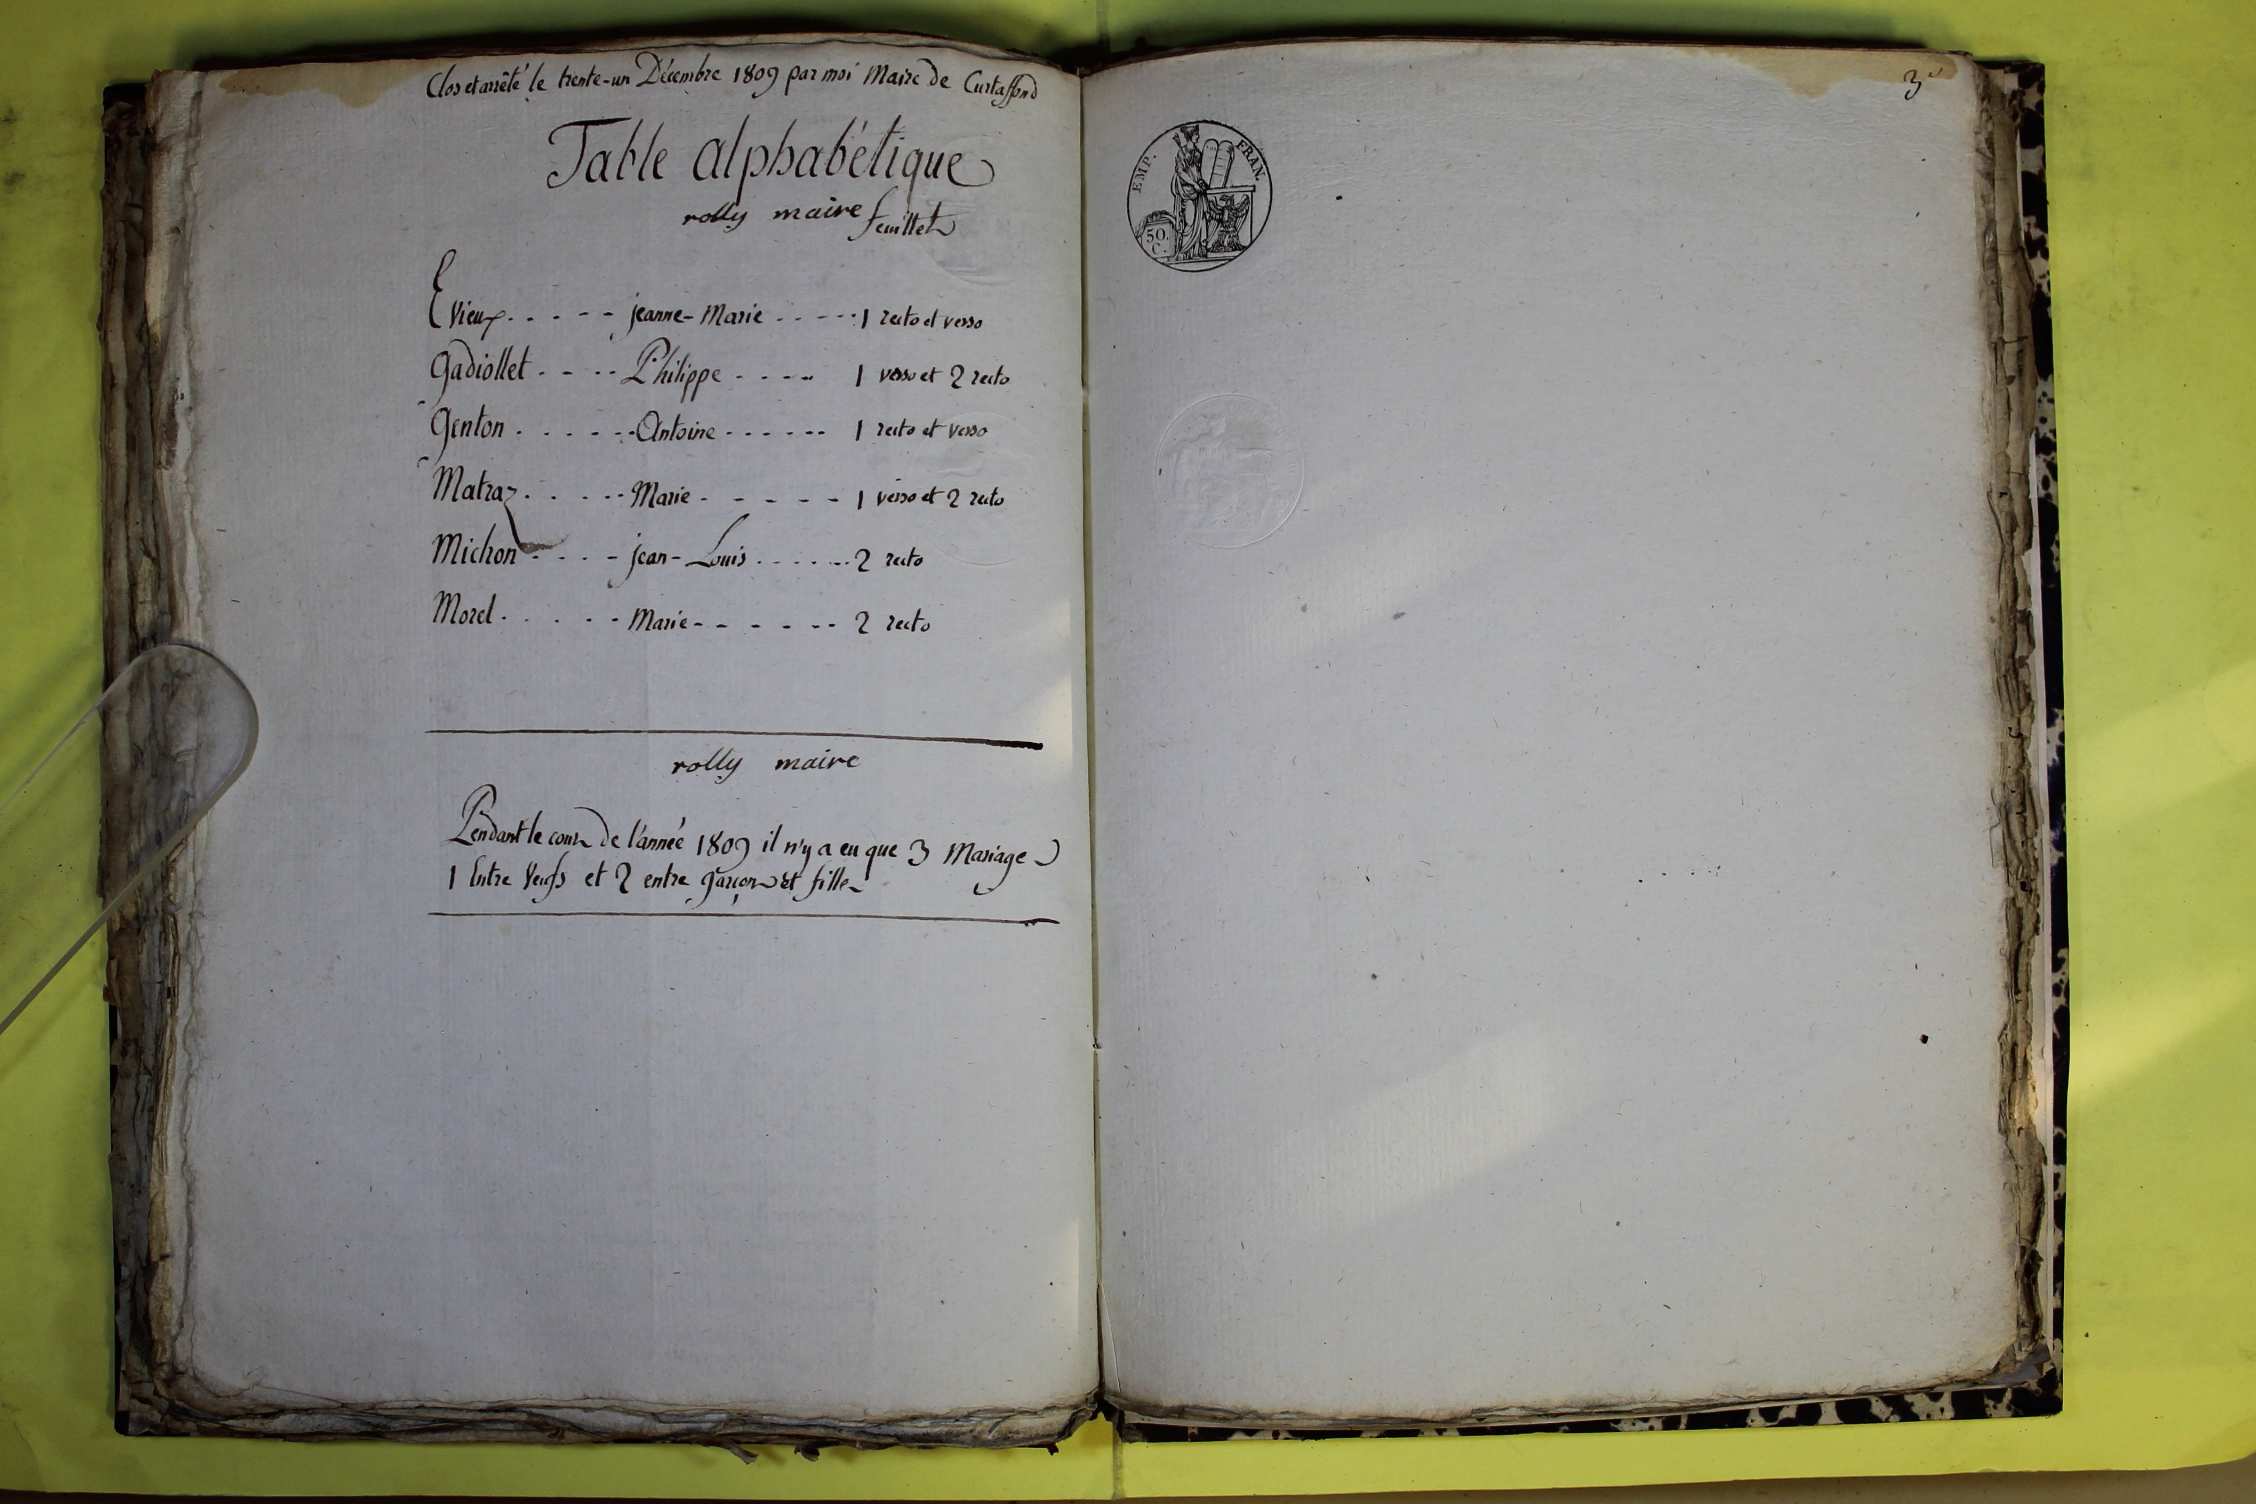 Clos et arrêté le trente-un Décembre 1809 par moi Maire de Curtafond
Table alphabétique
rolly maire feuillets
Evieux . . . . . jeanne-Marie . . . . . 1 recto et verso
Gadiollet . . . . . Philippe . . . . 1 verso et 2 recto
Genton . . . . . . Antoine . . . . . . 1 recto et verso
Matraz . . . . . Marie . . . . . . 1 verso et 2 recto
Michon . . . . jean-Louis . . . . . . 2 recto
Morel . . . . . . Marie . . . . . . . 2 recto
rolly maire
Pendant le cours de l'année 1809 il n'y a eu que 3 Mariages
1 Entre Veufs et 2 entre garçons et filles
3e
EMP. FRAN.
50.
C.